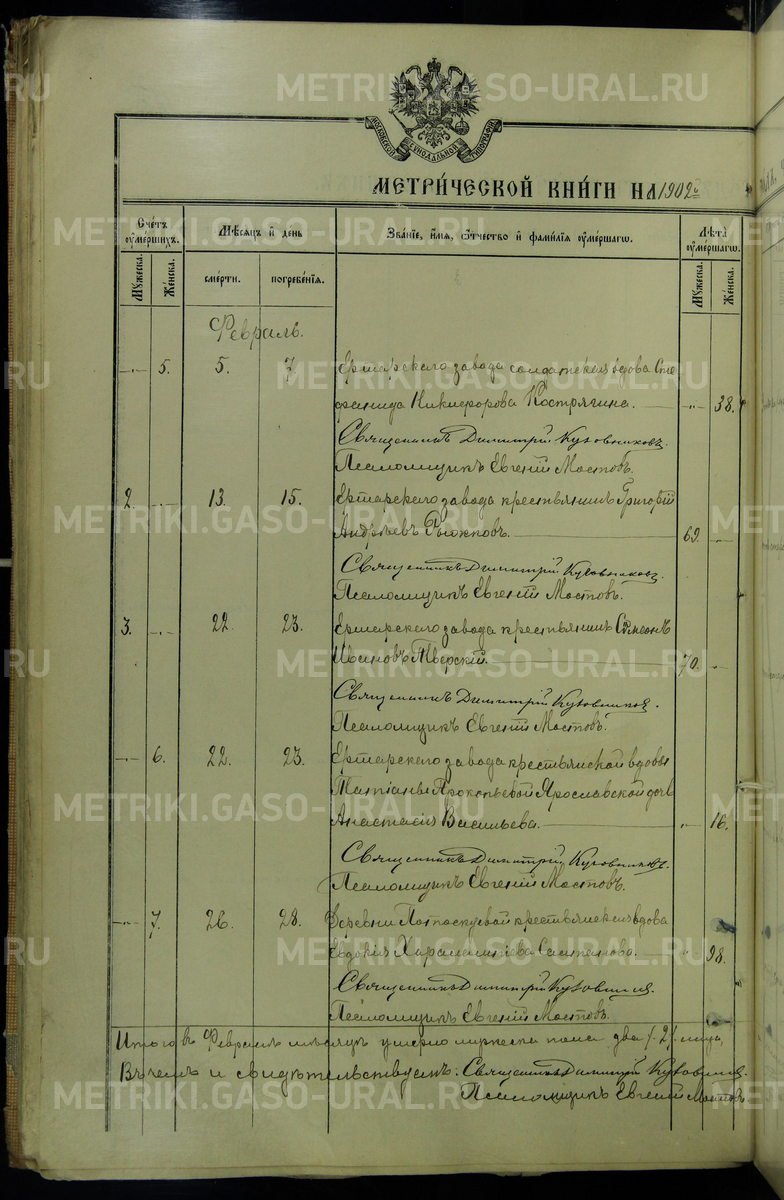 METRIKI.GASO-URAL.RU
МОСКОВСКОЙ СѴНОДАЛЬНОЙ ТИПОГРАФІИ
МЕТРИ́ЧЕСКОЙ КНИ́ГИ НА 1902 й
Сче́тъ ᲂу҆ме́ршихъ.
Мѣ́сяцъ и҆ де́нь
Зва́нїе, и҆́мѧ, ѻ҆́тчество и҆ фами́лїѧ ᲂу҆ме́ршагѡ.
Лѣ́та ᲂу҆ме́ршагѡ.
Мꙋ́жеска. Же́нска.
сме́рти. погребе́нїѧ.
Мꙋ́жеска. Же́нска.
Февраль.
-„- 5. 5. 7. Ертарскаго завода солдатская вдова Сте
фанида Никифорова Кострягина. -„- 38.
Священникъ Димитрій Кузовниковъ.
Псаломщикъ Евгеній Мостовъ.
2. -„- 13. 15. Ертарскаго завода крестьянинъ Григорій
Андреевъ 62. -„-
Священникъ Димитрій Кузовниковъ.
Псаломщикъ Евгеній Мостовъ.
3. -„- 22. 23. Ертарскаго завода крестьянинъ Сѵмеонъ
Ивановъ Тверскій. 70. -„-
Священникъ Димитрій Кузовниковъ.
Псаломщикъ Евгеній Мостовъ.
-„- 6. 22. 23. Ертарскаго завода крестьянской вдовы
Татіаны Прокопьевой Ярославской дочь
Анастасія Васильева. „ 16.
Священникъ Димитрій Кузовниковъ.
Псаломщикъ Евгеній Мостовъ.
-„- 7. 26. 28. Деревни Потаскуевой крестьянская вдова
Евдокія Харалампіева „ 98.
Священникъ Димитрій Кузовниковъ.
Псаломщикъ Евгеній Мостовъ.
Итого въ Февралѣ мѣсяцѣ умерло мужеска пола два /2/ лица,
Въ чемъ и свидѣтельствуемъ: Священникъ Димитрій Кузовниковъ.
Псаломщикъ Евгеній Мостовъ.